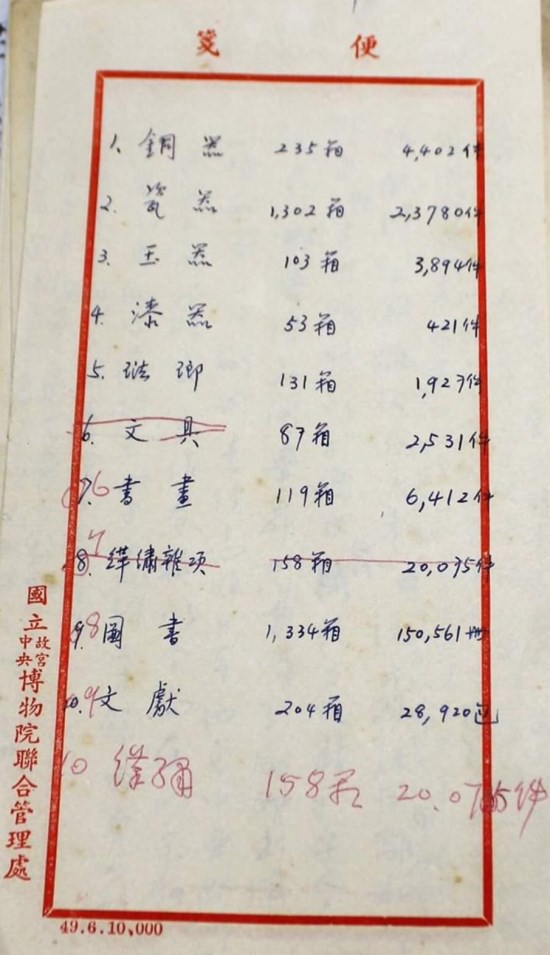 便箋
1. 銅器 235箱 4,402件
2. 瓷器 1,302箱 2,3780件
3. 玉器 103箱 3,894件
4. 漆器 53箱 421件
5. 琺瑯 131箱 1,927件
6. 文具 87箱 2,531件
7. 6 書畫 119箱 6,412件
8. 7 緙繡雜項 158箱 20,075件
9. 8 圖書 1,334箱 150,561冊
10. 9 文獻 204箱 28,920包
10 緙繡 158箱 20.075件
國立故宮中央博物院聯合管理處
49.6.10,000